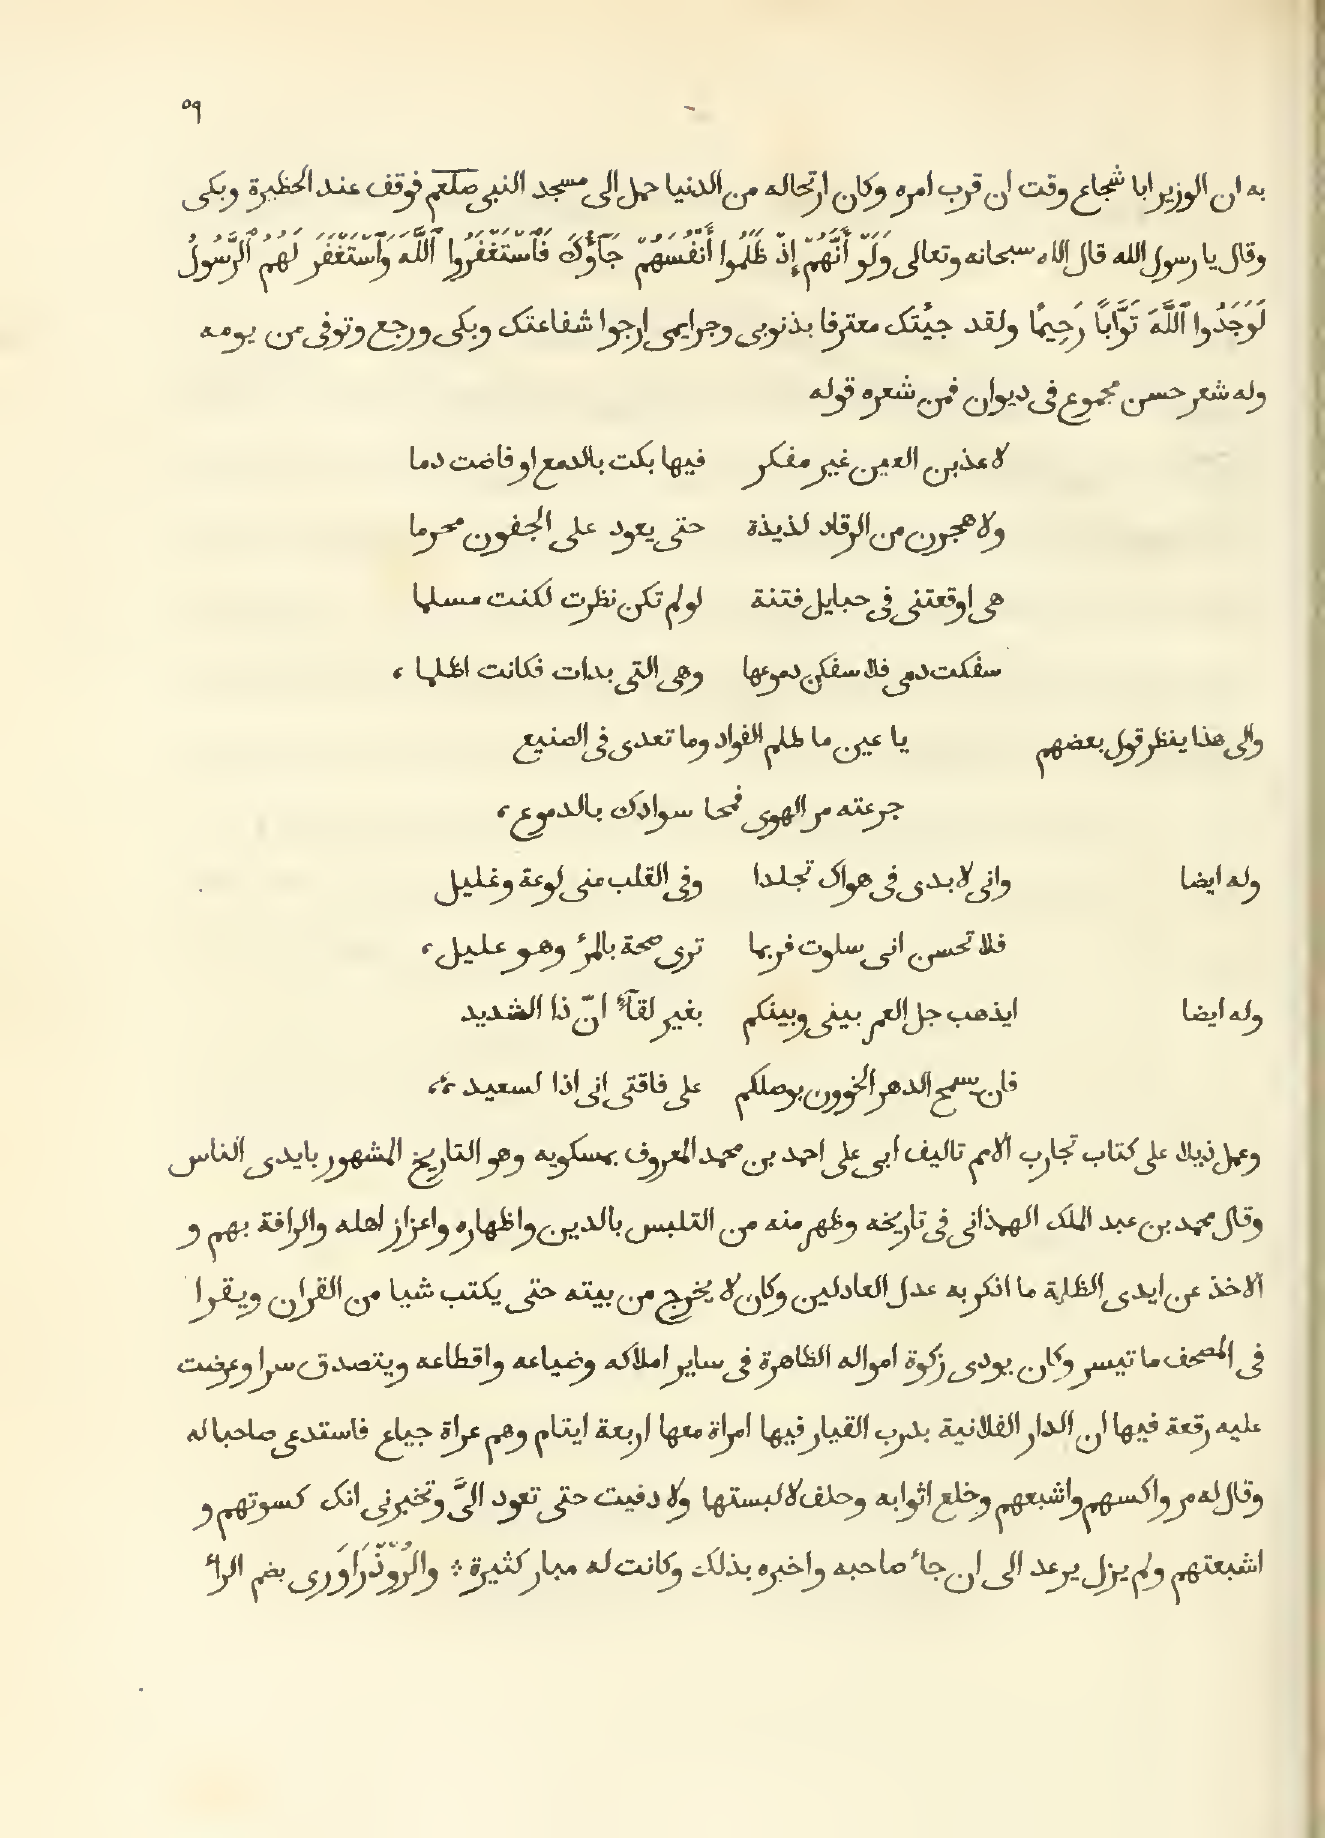 ٥٩
به ان الوزير ابا شجاع وقت ان قرب امره وكان ارتحاله من الدنيا حمل الى مسجد النبى صلعم فوقف عند الحظيرة وبكى
وقال يا رسول الله قال الله سبحانه وتعالى وَلَوْ أَنَّهُمْ إِذْ ظَلَمُوا أَنْفُسَهُمْ جَآؤُكَ فَٱسْتَغْفَرُوا ٱللَّهَ وَٱسْتَغْفَرَ لَهُمُ ٱلرَّسُولُ
لَوَجَدُوا ٱللَّهَ تَوَّابًا رَحِيمًا ولقد جيُتك معترفا بذنوبى وجرايمى ارجوا شفاعتك وبكى ورجع وتوفى من يومه
وله شعر حسن مجموع فى ديوان فمن شعره قوله
لاعذبن العين غير مفكر فيها بكت بالدمع او فاضت دما
ولاهجرن من الرقاد لذيذة حتى يعود على الجفون محرما
هى اوقعتنى فى حبايل فتنة لو لم تكن نظرت لكنت مسلما
سفكت دمى فلاسفكن دموعها وهى التى بدات فكانت اظلما ،
والى هذا ينظر قول بعضهم يا عين ما ظلم الفواد وما تعدى فى الصنيع
جرعته مر الهوى فمحا سوادك بالدموع ،
وله ايضا وانى لابدى فى هواك تجلدا وفى القلب منى لوعة وغليل
فلا تحسن انى سلوت فربما ترى صحة بالمرٔ وهو عليل ،
وله ايضا ايذهب جل العم بينى وبينكم بغير لقآء انّ ذا الشديد
فان يسمح الدهر الخوون بوصلكم على فاقتى انى اذا لسعيد ،،
وعمل ذيلا على كتاب تجارب الامم تاليف ابى على احمد بن محمد المعروف بمسكويه وهو التاريخ المشهور بايدى الناس
وقال محمد بن عبد الملك الهمذانى فى تاريخه وظهر منه من التلبس بالدين واظهاره واعزاز اهله والرافة بهم و
الاخذ عن ايدى الظلمة ما انكر به عدل العادلين وكان لا يخرج من بيته حتى يكتب شيا من القران ويقرا
فى المصحف ما تيسر وكان يودى زكوة امواله الظاهرة فى ساير املاكه وضياعه واقطاعه ويتصدق سرا وعرضت
عليه رقعة فيها ان الدار الفلانية بدرب القيار فيها امراة معها اربعة ايتام وهم عراة جياع فاستدعى صاحبا له
وقال له مر واكسهم واشبعهم وخلع اثوابه وحلف لا لبستها ولا دفيت حتى تعود الىَّ وتخبرنى انك كسوتهم و
اشبعتهم ولم يزل يرعد الى ان جاء صاحبه واخبره بذلك وكانت له مبار كثيرة ؞ والرُوذْرَاوَرى بضم الراء